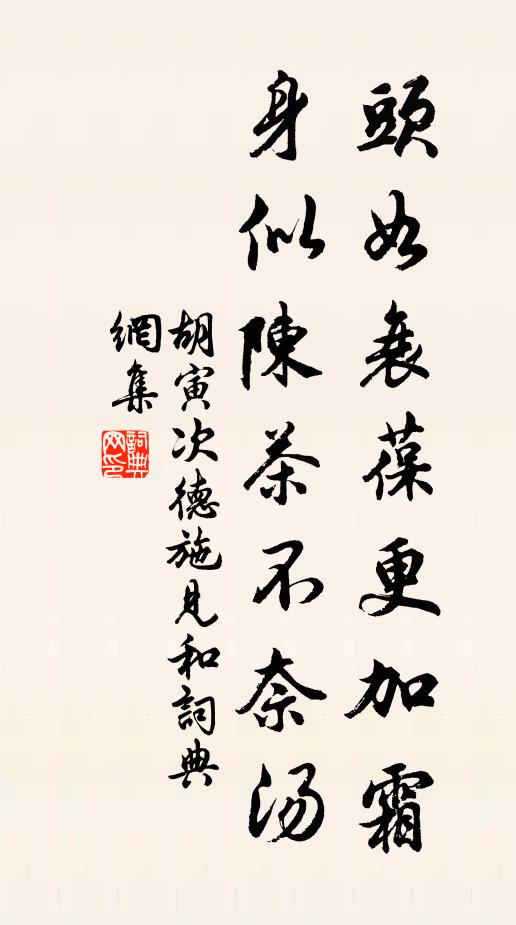 頭如衰葆更加霜
身似陳茶不奈湯
胡寅次德施見和詞典
網集
詞典網印